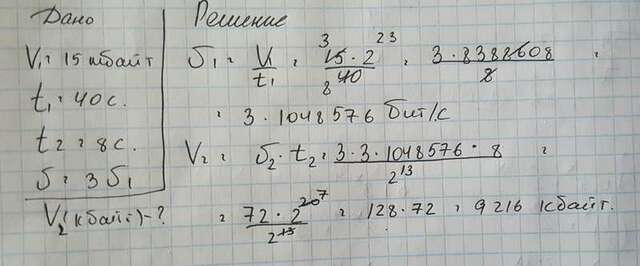 Дано
V₁ = 15 мбайт
t₁ = 40 с.
t₂ = 8 с.
δ = 3 δ₁
V₂(кбайт) - ?
Решение
δ₁ = V₁/t₁ = 15 · 2²³ / 40 = 3 · 8388608 / 8 =
= 3 · 1048576 бит/с
V₂ = δ₂ · t₂ = 3 · 3 · 1048576 · 8 / 2¹³ =
= 72 · 2²⁰ / 2¹³ = 128 · 72 = 9216 кбайт.